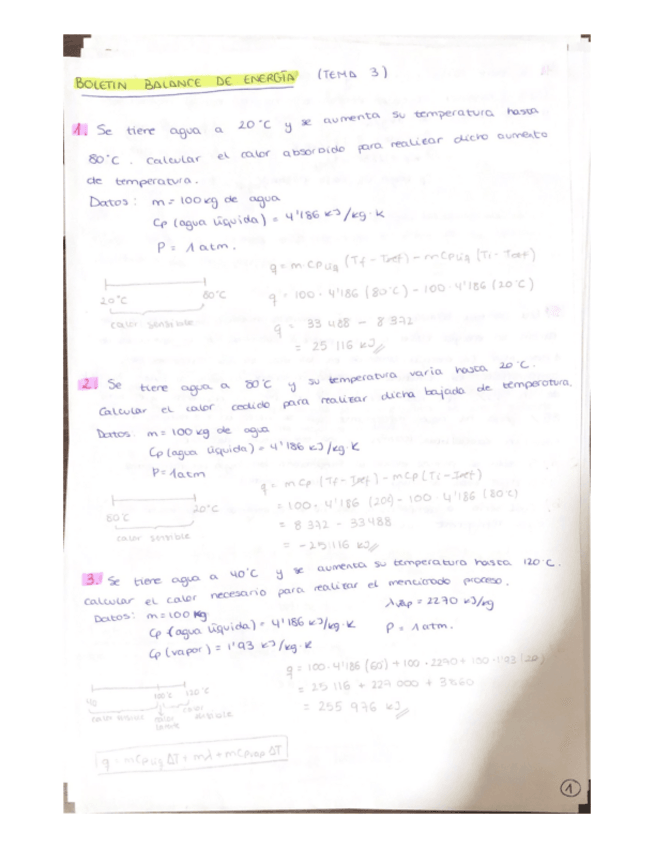 BOLETIN BALANCE DE ENERGÍA (TEMA 3)
1. Se tiene agua a 20°C y se aumenta su temperatura hasta
80°C. Calcular el calor absorbido para realizar dicho aumento
de temperatura.
Datos: m = 100 kg de agua
Cp (agua líquida) = 4'186 kJ/kg·K
P = 1 atm.
q = m·Cp líq (Tf - Tref) - m·Cp líq (Ti - Tref)
20°C 80°C
q = 100 · 4'186 (80°C) - 100 · 4'186 (20°C)
calor sensible
q = 33 488 - 8 372
= 25 116 kJ
2. Se tiene agua a 80°C y su temperatura varía hasta 20°C.
Calcular el calor cedido para realizar dicha bajada de temperatura.
Datos: m = 100 kg de agua
Cp (agua líquida) = 4'186 kJ/kg·K
P = 1 atm
q = mCp (Tf - Tref) - mCp (Ti - Tref)
80°C 20°C
= 100 · 4'186 (20°C) - 100 · 4'186 (80°C)
calor sensible
= 8 372 - 33 488
= -25 116 kJ
3. Se tiene agua a 40°C y se aumenta su temperatura hasta 120°C.
Calcular el calor necesario para realizar el mencionado proceso.
Datos: m = 100 kg
λvap = 2270 kJ/kg
Cp (agua líquida) = 4'186 kJ/kg·K
P = 1 atm.
Cp (vapor) = 1'93 kJ/kg·K
q = 100 · 4'186 (60) + 100 · 2270 + 100 · 1'93 (20)
40 100°C 120°C
= 25 116 + 227 000 + 3860
calor sensible calor latente calor sensible
= 255 976 kJ
q = mCp líq ΔT + mλ + mCp vap ΔT
1